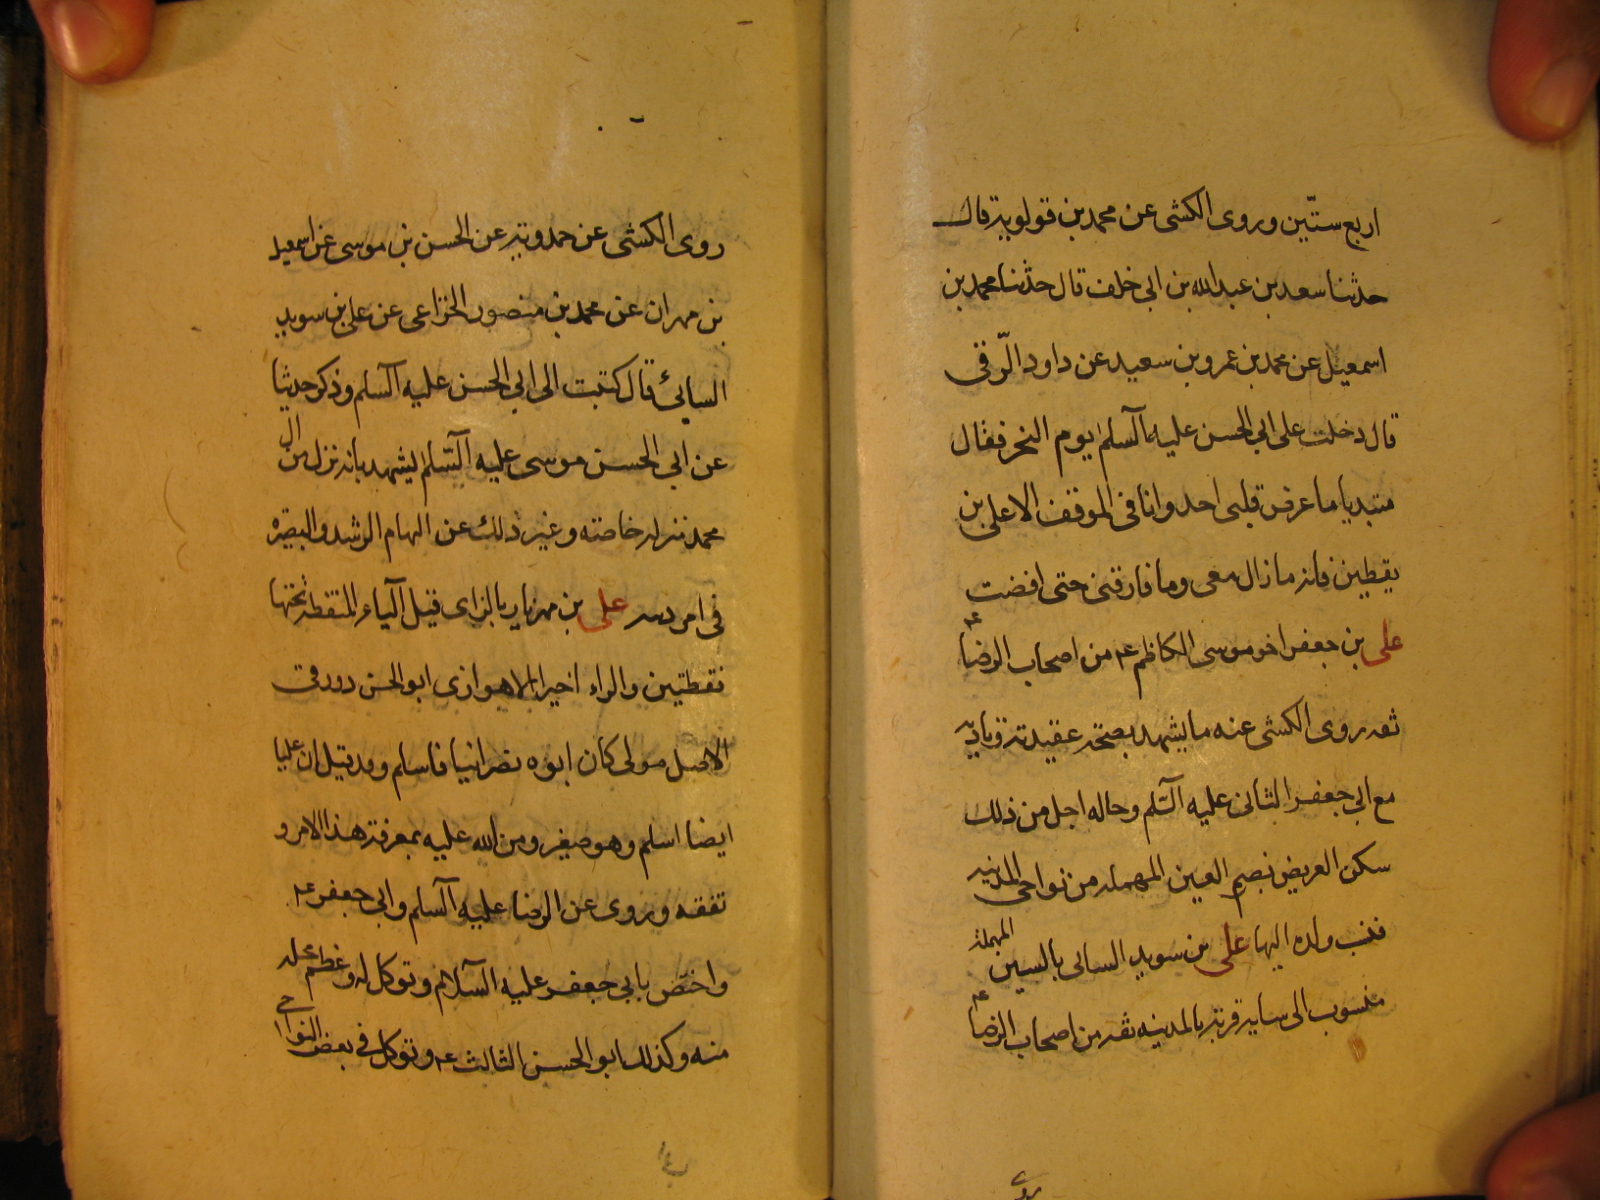 اربع ستّين وروى الكشى عن محمد بن قولويه قال
حدثنا سعد بن عبد الله بن ابى خلف قال حدثنا محمد بن
اسمعيل عن محمد بن عمرو بن سعيد عن داود الرّقى
قال دخلت على ابى الحسن عليه السلم يوم النحر فقال
مبتديا ما عرض قلبى احد وانا فى الموقف الا على بن
يقطين فانه ما زال معى وما فارقنى حتى افضت
على بن جعفر اخو موسى الكاظم ع من اصحاب الرضا ع
ثقه روى الكشى عنه ما يشهد بصحة عقيدته وتاديه
مع ابى جعفر الثانى عليه السّلم وحاله اجل من ذلك
سكن العريض بضم العين المهمله من نواحى المدينه
فنسب ولده اليها على بن سويد السائى بالسين المهملة
منسوب الى سايه قرية بالمدينه ثقه من اصحاب الرضا ع
روى
روى الكشى عن حمدويه عن الحسن بن موسى عن اسمعيل
بن مهران عن محمد بن منصور الخزاعى عن على بن سويد
السائى قال كتبت الى ابى الحسن عليه السلم وذكر حديثا
عن ابى الحسن موسى عليه السّلم يشهد بانه نزل من ال
محمد منزله خاصته وغير ذلك عن الهام الرشد والبصره
فى امر دينه على بن مهزيار بالزاى قبل الياء المنقطة تحتها
نقطتين والراء اخيرا الاهوازى ابو الحسن دورقى
الاصل مولى كان ابوه نصرانيا فاسلم وقد قيل ان عليا
ايضا اسلم وهو صغير ومن الله عليه بمعرفة هذا الامر و
تفقه وروى عن الرضا عليه السلم وابى جعفر ع
واختص بابى جعفر عليه السّلام وتوكل له وعظم محله
منه وكذلك ابو الحسن الثالث ع وتوكل فى بعض النواحى